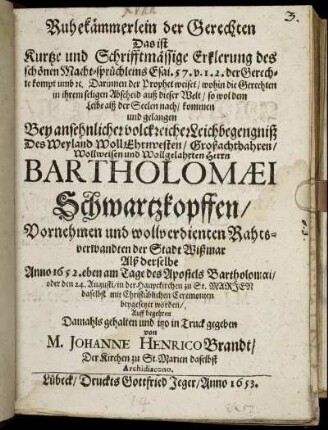 3.
Ruhekämmerlein der Gerechten
Das ist
Kurtze und Schrifftmässige Erklerung des
schönen Macht-sprüchleins Esai. 57. v. 1. 2. der Gerech-
te kompt umb ꝛc. Darinnen der Prophet weiset / wohin die Gerechten
in ihrem seligen Abscheid auß dieser Welt / so wol dem
Leibe alß der Seelen nach / kommen
und gelangen
Bey ansehnlicher volckreicher Leichbegengniß
Des Weyland Woll Ehrnvesten / Großachtbahren /
Wollweisen und Wollgelahrten Herrn
BARTHOLOMÆI
Schwartzkopffen /
Vornehmen und wollverdienten Rahts-
verwandten der Stadt Wißmar
Alß derselbe
Anno 1652. eben am Tage des Apostels Bartholomæi /
oder den 24. Augusti / in der Hauptkirchen zu St. MARIEN
daselbst mit Christüblichen Ceremonien
beygesetzet worden /
Auff begehren
Damahls gehalten und itzo in Truck gegeben
von
M. JOHANNE HENRICO Brandt /
Der Kirchen zu St. Marien daselbst
Archidiacono.
Lübeck / Druckts Gottfried Jeger / Anno 1653.